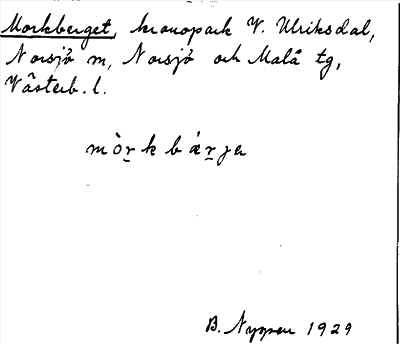 Morkberget, kronopark V. Ulriksdal,
Norsjö m, Norsjö och Malå tg,
Västerb. l.
mòr̲kbær̲ja
B. Nyqvist 1929